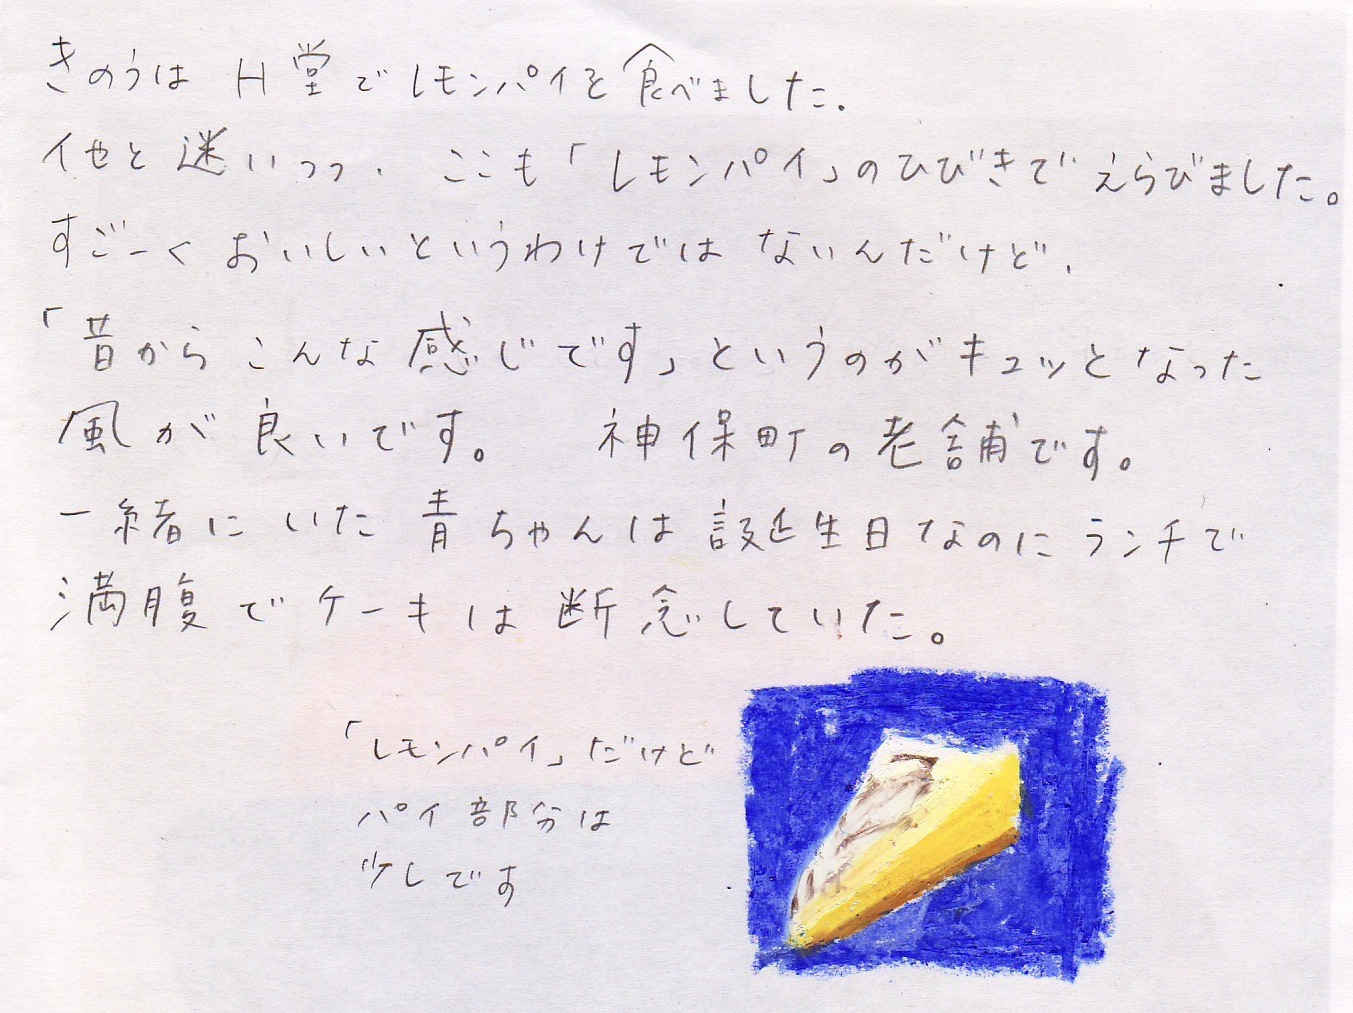 きのうは H堂でレモンパイを食べました.
他と迷いつつ、ここも「レモンパイ」のひびきでえらびました。
すごーくおいしいというわけではないんだけど、
「昔からこんな感じです」というのがキュッとなった
風が良いです。 神保町の老舗です。
一緒にいた青ちゃんは誕生日なのにランチで
満腹でケーキは断念していた。
「レモンパイ」だけど
パイ部分は
少しです